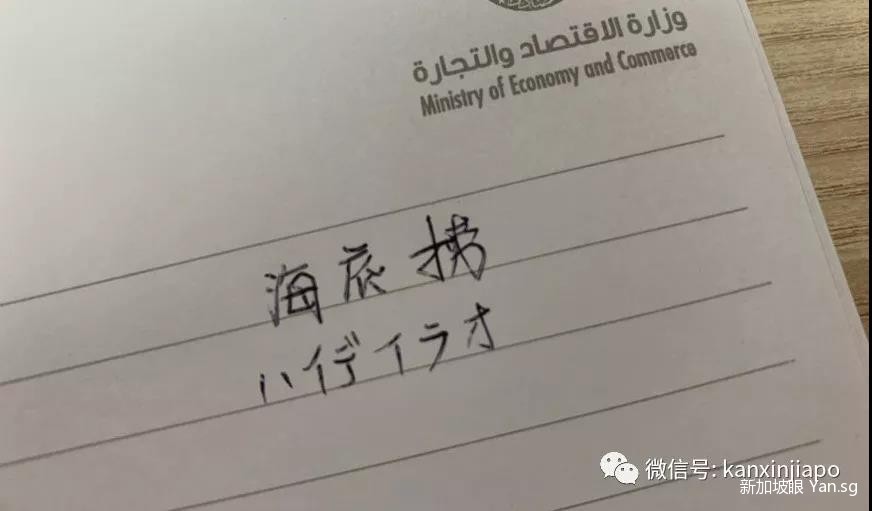 وزارة الاقتصاد والتجارة
Ministry of Economy and Commerce
海底撈
ハイディラオ
微信号: kanxinjiapo
新加坡眼 Yan.sg